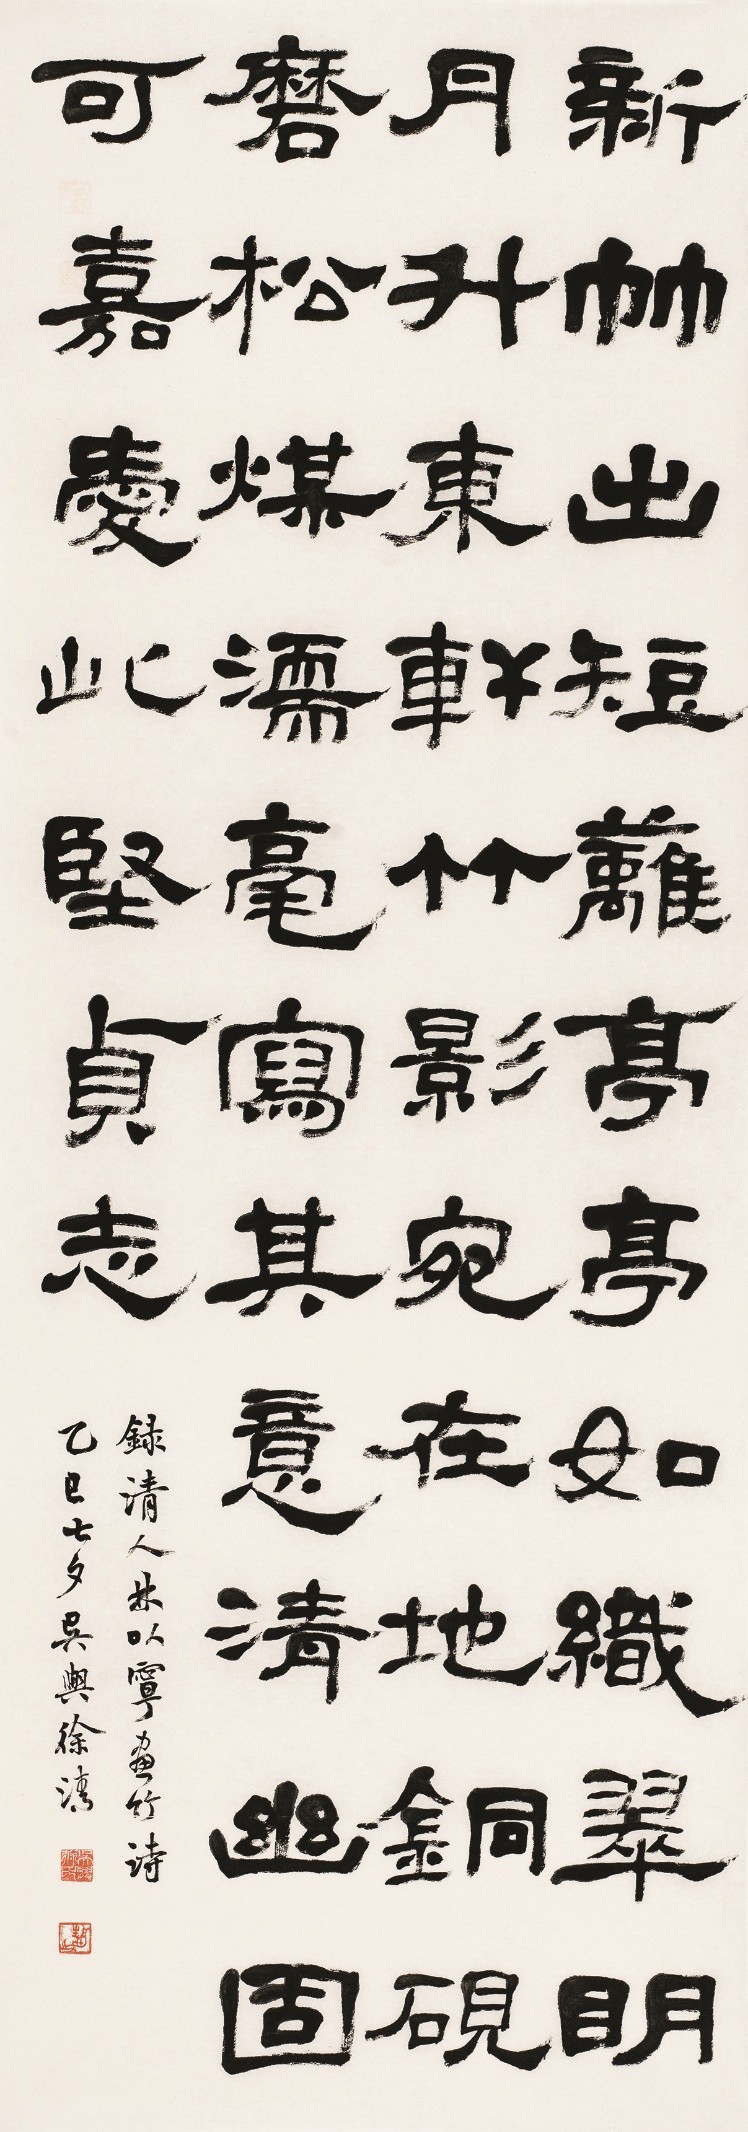 新竹出短蘺亭亭如織翠明
月升東軒竹影宛在地銅硯
磨松煤濡毫寫其意清幽固
可嘉愛此堅貞志
録清人林以寧畫竹詩
乙巳七夕吳興徐清